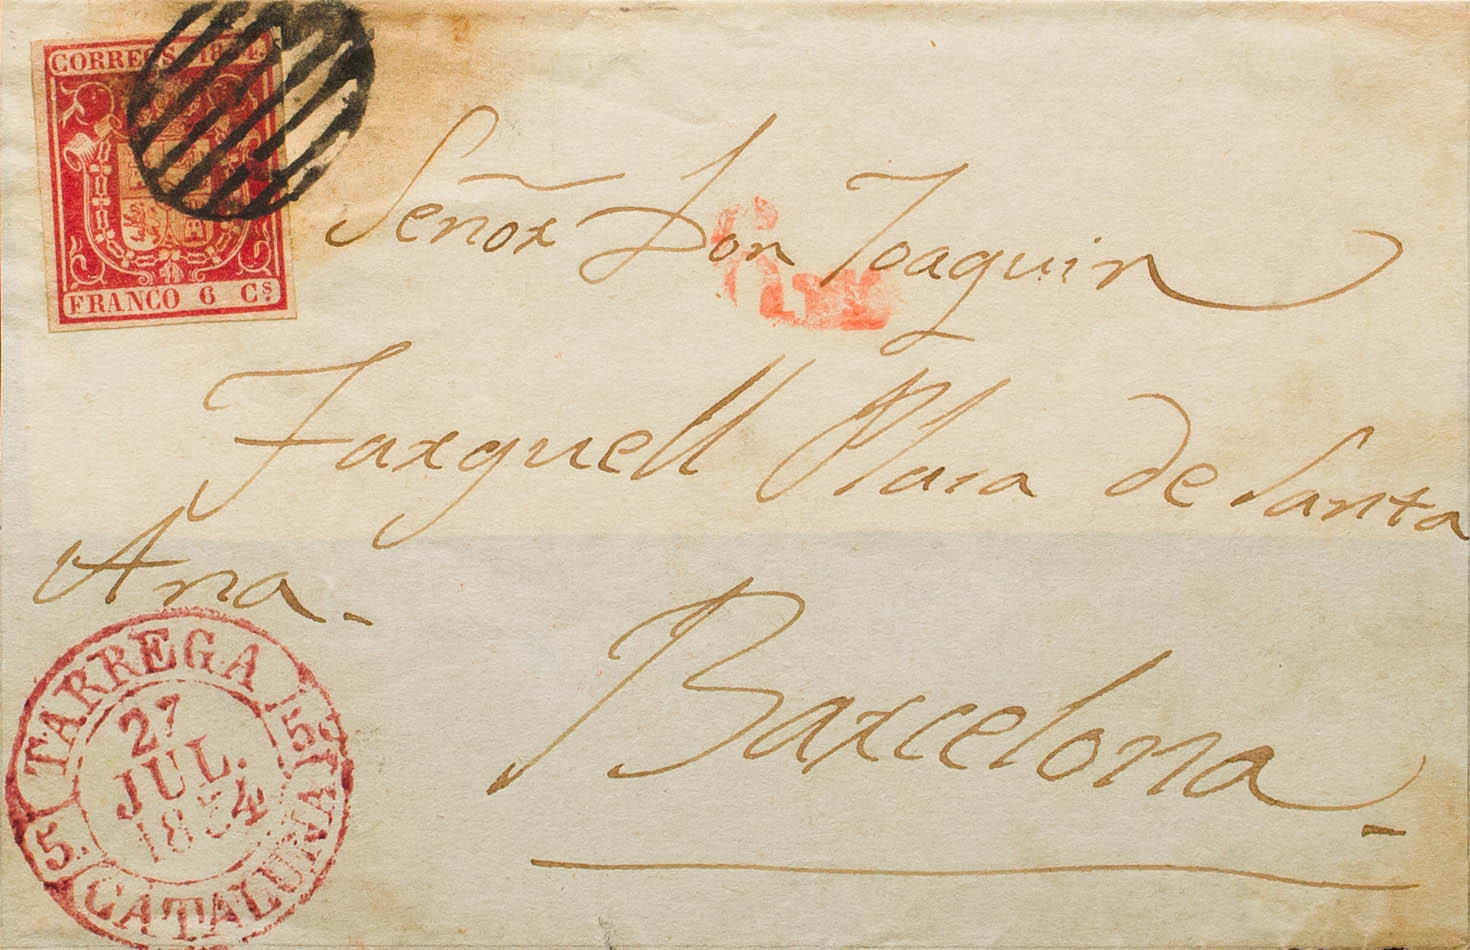 CORREOS 1854.
FRANCO 6 Cs.
Señor Don Joaquin
Farguell Plaza de Santa
Ana.
Barcelona
TARREGA
27
JUL.
1854
5.
CATALUÑA